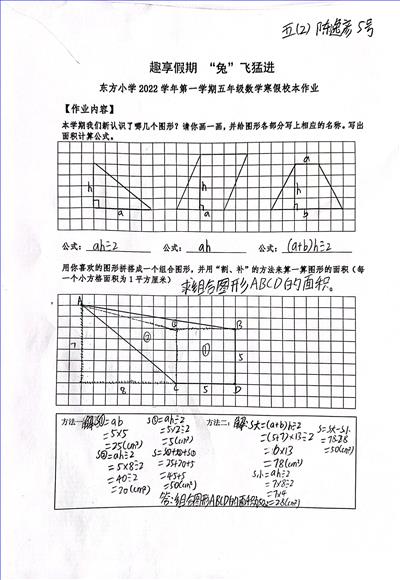 五(2) 陈逸彦 5号
趣享假期 “兔”飞猛进
东方小学 2022 学年第一学期五年级数学寒假校本作业
【作业内容】
本学期我们新认识了哪几个图形？请你画一画，并给图形各部分写上相应的名称。写出
面积计算公式。
h a
h a
a h b
公式： ah÷2 公式： ah 公式： (a+b)h÷2
用你喜欢的图形拼搭成一个组合图形，并用“割、补”的方法来算一算图形的面积（每
一个小方格面积为 1 平方厘米） 求组合图形ABCD的面积。
A
B
② ①
7 5
8 C 5 D
方法一：解:S①=ab
=5×5
=25(cm²)
S②=ah÷2
=5×8÷2
=40÷2
=20(cm²)
=5×2÷2
=5(cm²)
=25+20+5
=45+5
=50(cm²)
方法二：解:S大=(a+b)h÷2
=(5+7)×13÷2
=6×13
=78(cm²)
S小=ah÷2
=7×8÷2
=7×4
=28(cm²)
S=S大-S小
=78-28
=50(cm²)
答:组合图形ABCD的面积